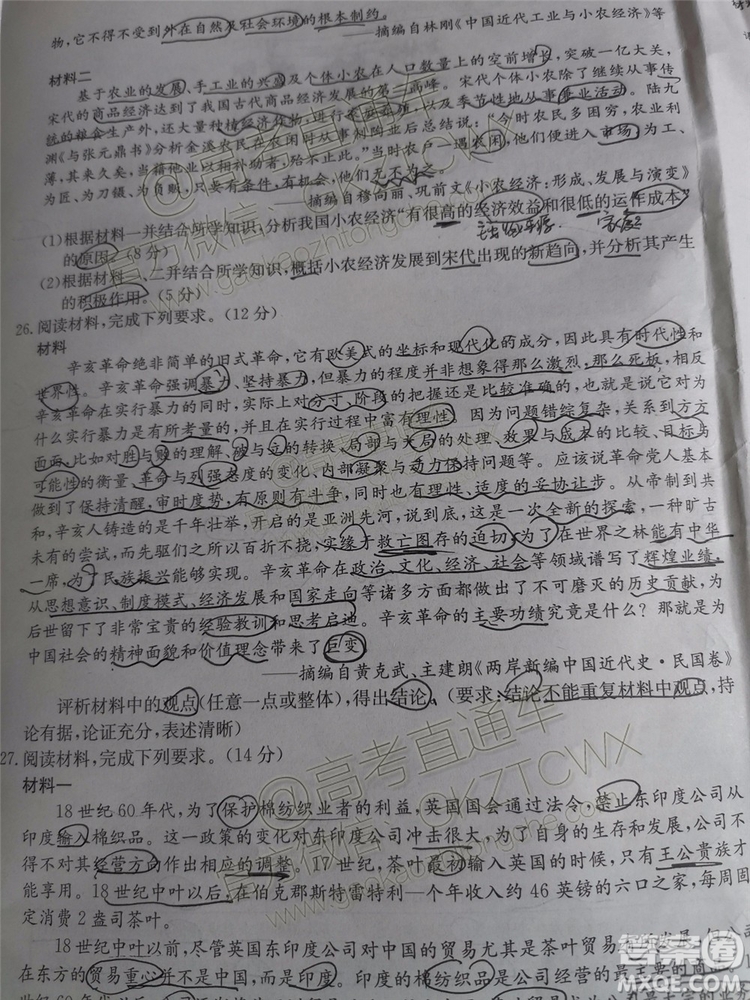 物，它不得不受到外在自然及社会环境的根本制约。
——摘编自林刚《中国近代工业与小农经济》等
材料二
基于农业的发展、手工业的兴盛及个体小农在人口数量上的空前增长，突破一亿大关，
宋代的商品经济达到了我国古代商品经济发展的第二个高峰。宋代个体小农除了继续从事传
统的粮食生产外，还大量种植经济作物，进行家庭手工业，以及季节性地从事商业活动。陆九
渊《与张元鼎书》分析金溪农民在农闲时从事制陶业后总结说：“今时农民多困穷，农业利
薄，其来久矣，当其隙时，藉他业以相补助者，殆不止此。”当时农户一遇农闲，他们便进入市场为工、
为匠、为刀镊、为负贩，只要有条件，有机会，他们无不为之。
——摘编自穆向丽、巩前文《小农经济：形成、发展与演变》
(1)根据材料一并结合所学知识，分析我国小农经济“有很高的经济效益和很低的运作成本”
的原因。(8分)
(2)根据材料一、二并结合所学知识，概括小农经济发展到宋代出现的新趋向，并分析其产生
的积极作用。(5分)
26.阅读材料，完成下列要求。(12分)
材料
辛亥革命绝非简单的旧式革命，它有欧美式的坐标和现代化的成分，因此具有时代性和
世界性。辛亥革命强调暴力、坚持暴力，但暴力的程度并非想象得那么激烈，那么死板，相反
辛亥革命在实行暴力的同时，实际上对分寸、阶段的把握还是比较准确的，也就是说它对为
什么实行暴力是有所考量的，并且在实行过程中富有理性。因为问题错综复杂，关系到方方
面面，比如对胜与败的理解、破与立的转换、局部与大局的处理、效果与成本的比较、目标与
可能性的衡量、革命与列强态度的变化、内部凝聚与动力保持问题等。应该说革命党人基本
做到了保持清醒，审时度势，有原则有斗争，同时也有理性、适度的妥协让步。从帝制到共
和，辛亥人铸造的是千年壮举，开启的是亚洲先河，说到底，这是一次全新的探索，一种旷古
未有的尝试，而先驱们之所以百折不挠，实缘于救亡图存的迫切，为了在世界之林能有中华
一席，为了民族振兴能够实现。辛亥革命在政治、文化、经济、社会等领域谱写了辉煌业绩，
从思想意识、制度模式、经济发展和国家走向等诸多方面都做出了不可磨灭的历史贡献，为
后世留下了非常宝贵的经验教训和思考启迪。辛亥革命的主要功绩究竟是什么？那就是为
中国社会的精神面貌和价值理念带来了巨变
——摘编自黄克武、主建朗《两岸新编中国近代史·民国卷》
评析材料中的观点(任意一点或整体)，得出结论。(要求：结论不能重复材料中观点，持
论有据，论证充分，表述清晰)
27.阅读材料，完成下列要求。(14分)
材料一
18世纪60年代，为了保护棉纺织业者的利益，英国国会通过法令，禁止东印度公司从
印度输入棉织品。这一政策的变化对东印度公司冲击很大，为了自身的生存和发展，公司不
得不对其经营方向作出相应的调整。17世纪，茶叶最初输入英国的时候，只有王公贵族才
能享用。18世纪中叶以后，在伯克郡斯特雷特利一个年收入约46英镑的六口之家，每周固
定消费2盎司茶叶。
18世纪中叶以前，尽管英国东印度公司对中国的贸易尤其是茶叶贸易
在东方的贸易重心并不是中国，而是印度。印度的棉纺织品是公司经营的最主要的商